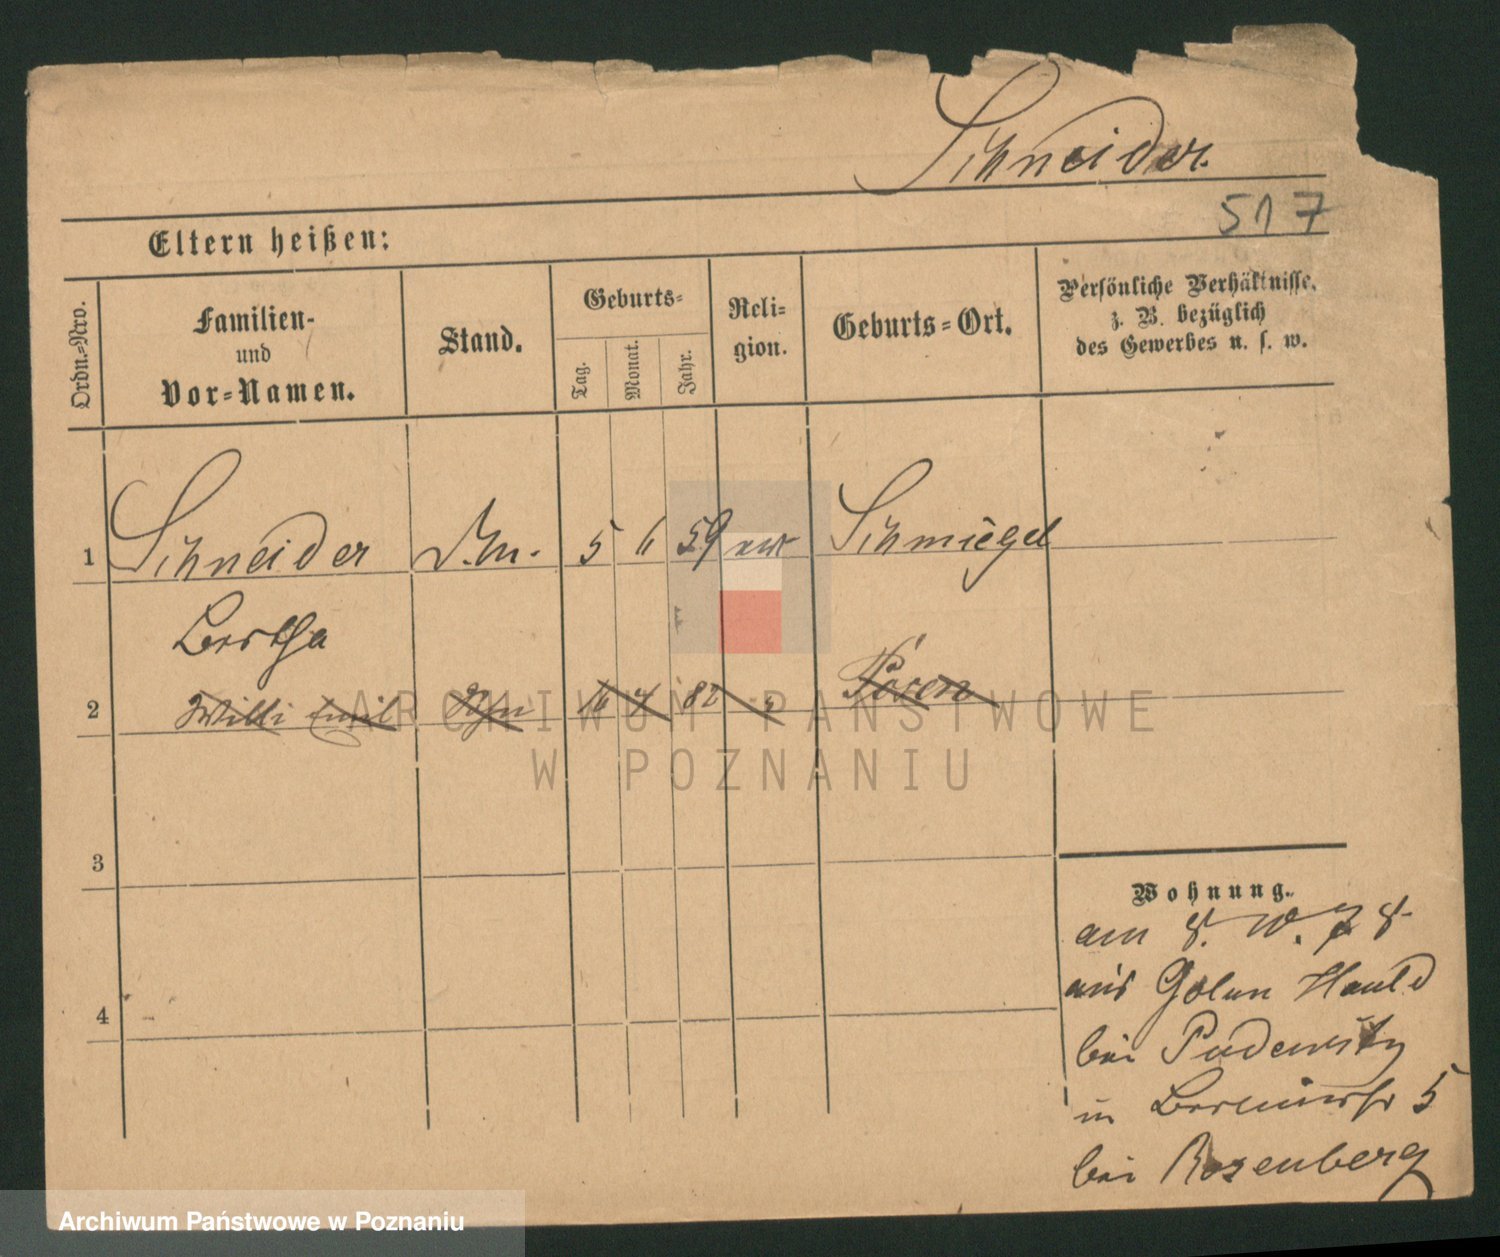 Schneider.
517
Eltern heißen:
Ordn.-Nro.
Familien-
und
Vor-Namen.
Stand.
Geburts-
Tag.
Monat.
Jahr.
Reli-
gion.
Geburts-Ort.
Persönliche Verhältnisse,
z. B. bezüglich
des Gewerbes u. s. w.
1 Schneider 5 6 59 ev Schmiegel
Bertha
2 Willi Emil 16 7 82 Posen
3
4
Wohnung.
am 8. 78
aus Golun Hauld
bei Pudewitz
in 5
bei Rosenberg
ARCHIWUM PAŃSTWOWE
W POZNANIU
Archiwum Państwowe w Poznaniu